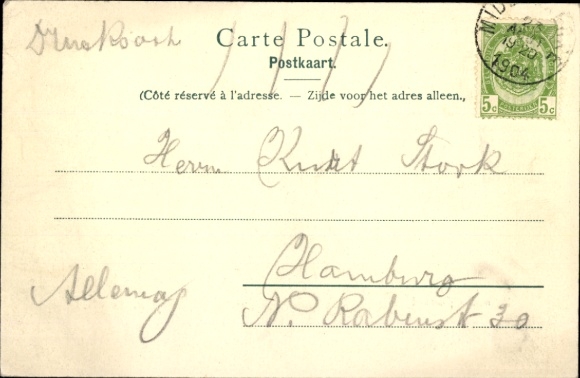 Drucksache
Carte Postale.
Postkaart.
(Côté réservé à l'adresse. — Zijde voor het adres alleen.,
Herrn Kurt Stork
Hamburg
Allemag
N. Rabenst 30
5c 5c
1904